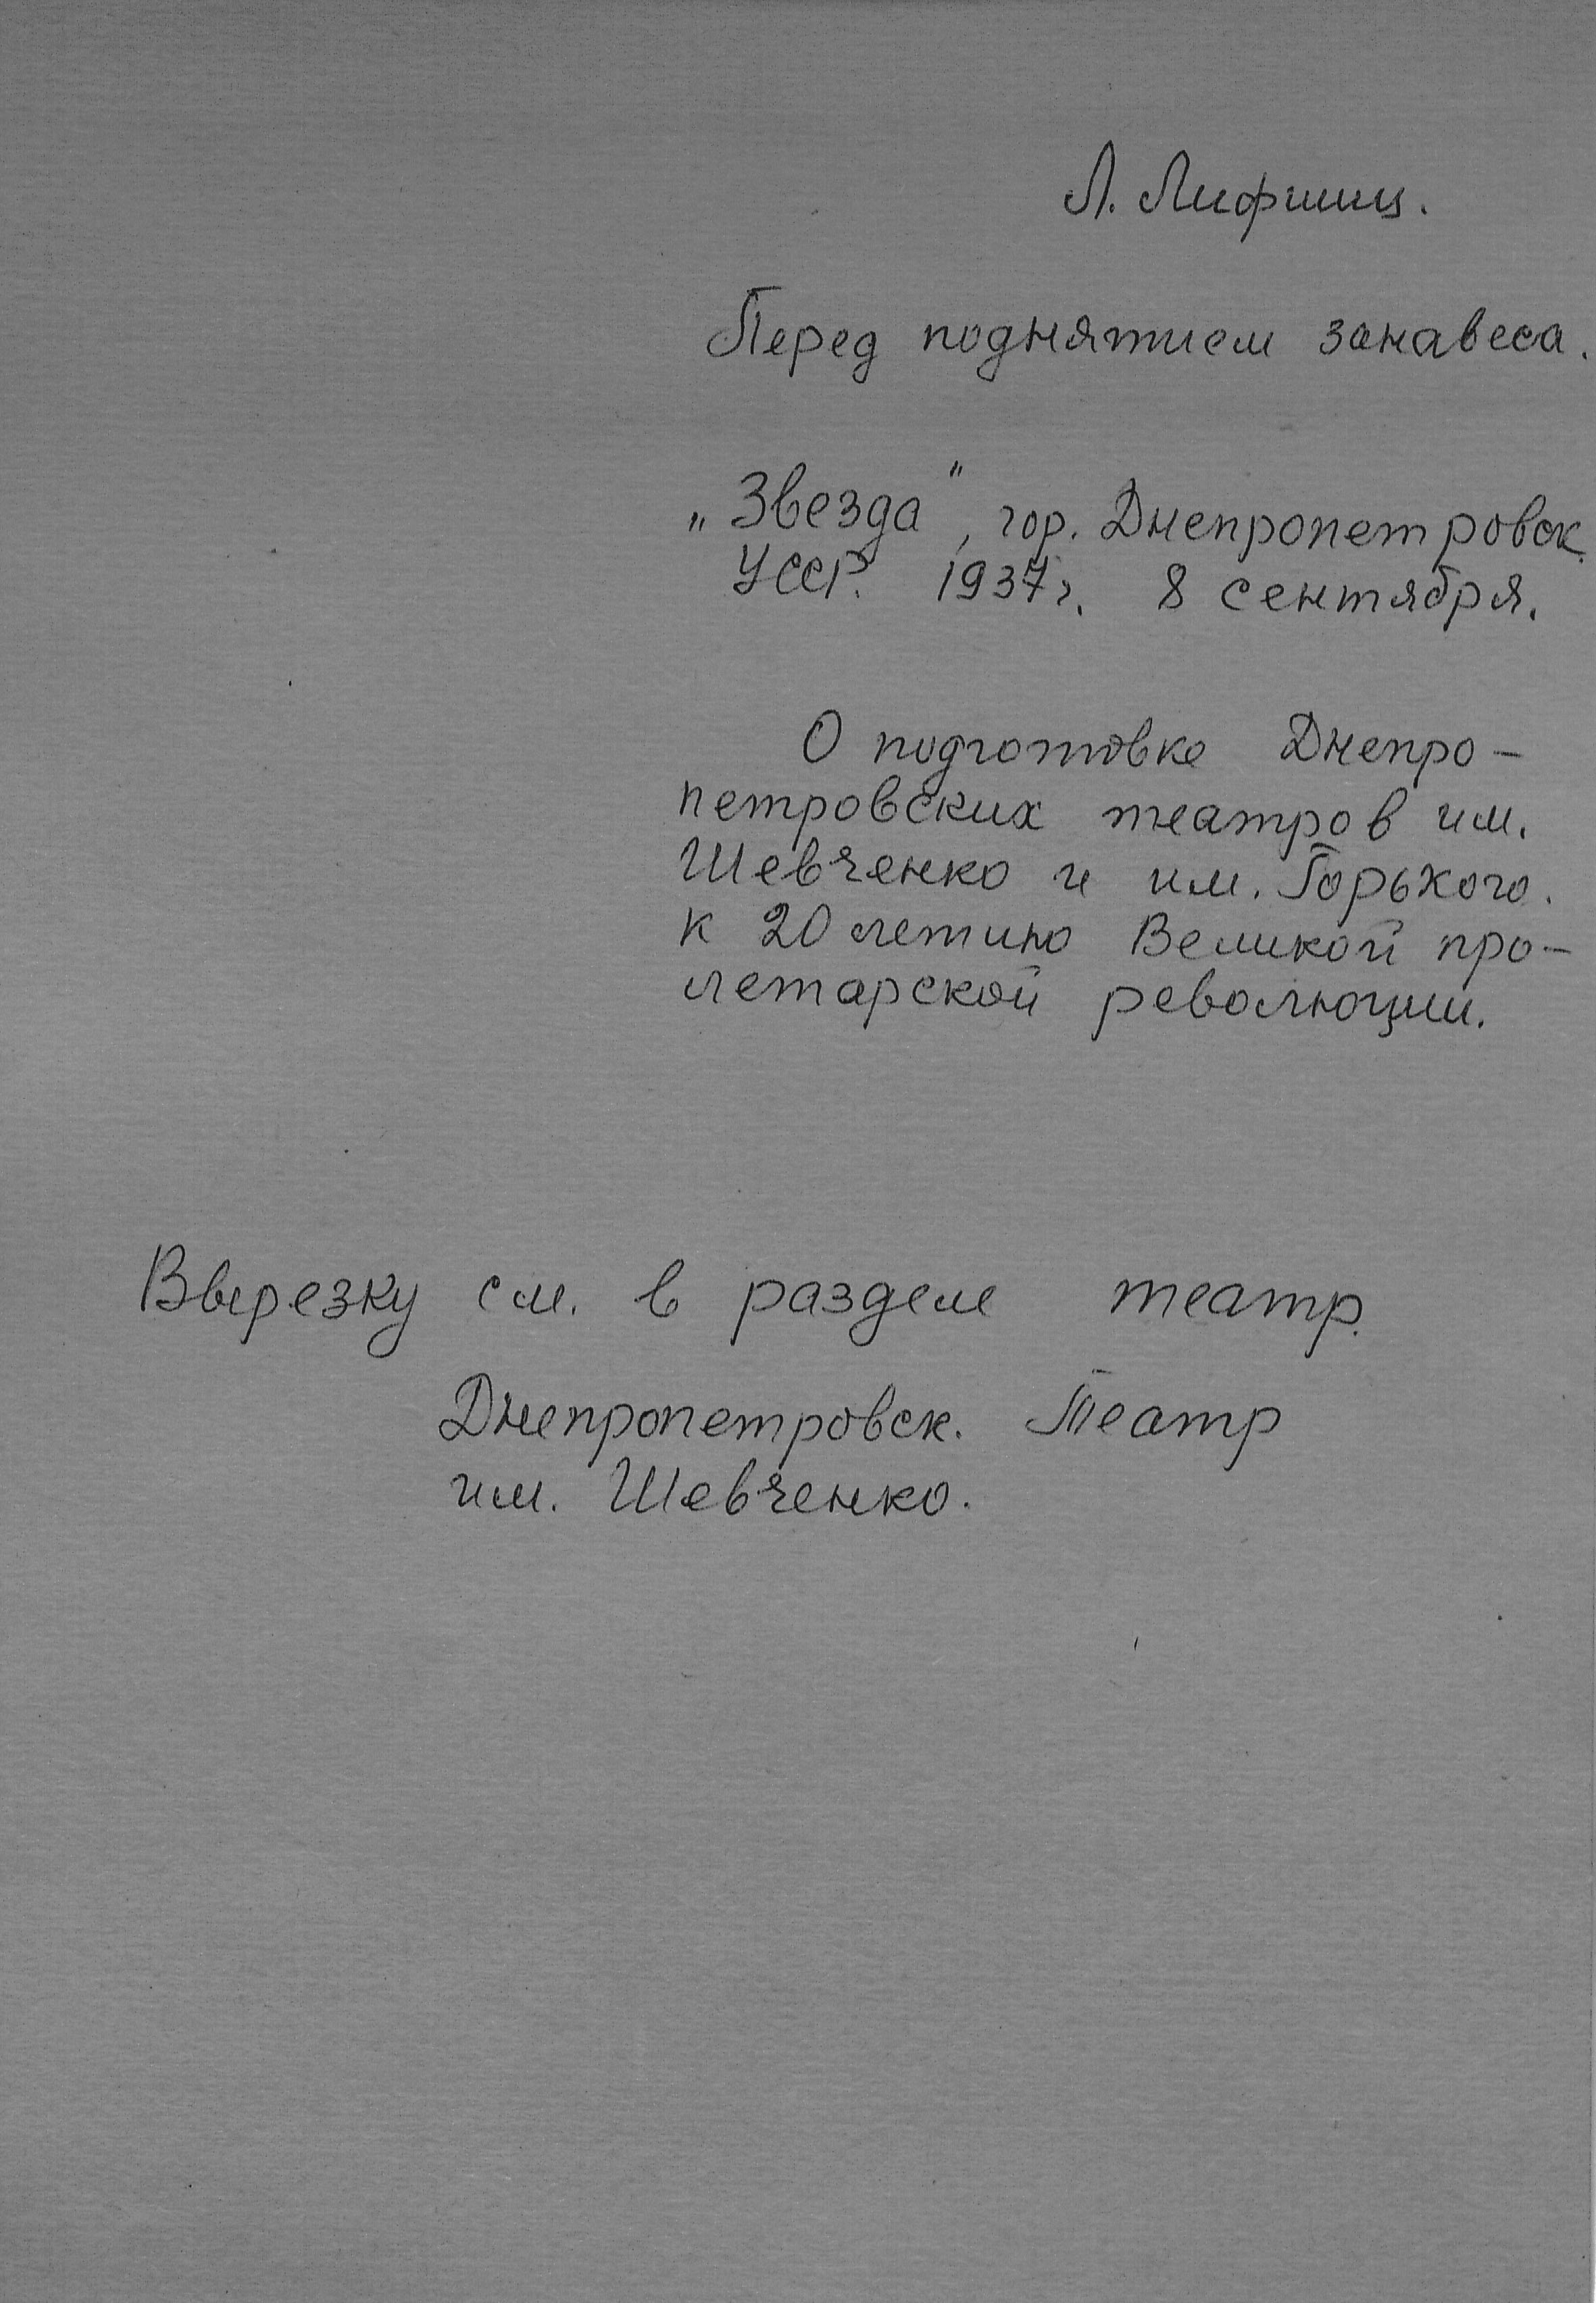 Л. Лифшиц.
Перед поднятием занавеса.
„Звезда", гор. Днепропетровск.
УССР. 1937 г. 8 сентября.
О подготовке Днепро-
петровских театров им.
Шевченко и им. Горького.
к 20 летию Великой про-
летарской революции.
Вырезку см. в разделе театр.
Днепропетровск. Театр
им. Шевченко.